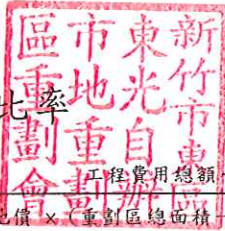 新竹市東區
東光自辦
市地重劃
區重劃會
比率
工程費用總額
價 × (重劃區總面積